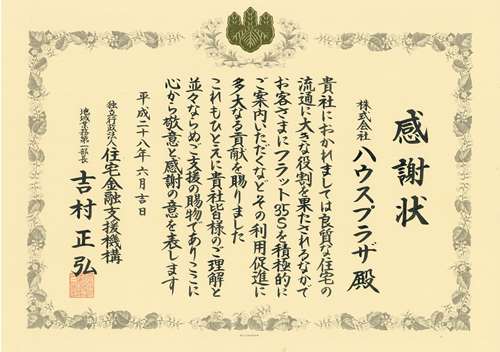 感謝状
株式会社 ハウスプラザ 殿
貴社におかれましては良質な住宅の
流通に大きな役割を果たされるなかで
お客さまにフラット35Sを積極的に
ご案内いただくなどその利用促進に
多大なる貢献を賜りました
これもひとえに貴社皆様のご理解と
並々ならぬご支援の賜物でありここに
心から敬意と感謝の意を表します
平成二十八年六月吉日
独立行政法人 住宅金融支援機構
地域業務第一部長 吉村正弘